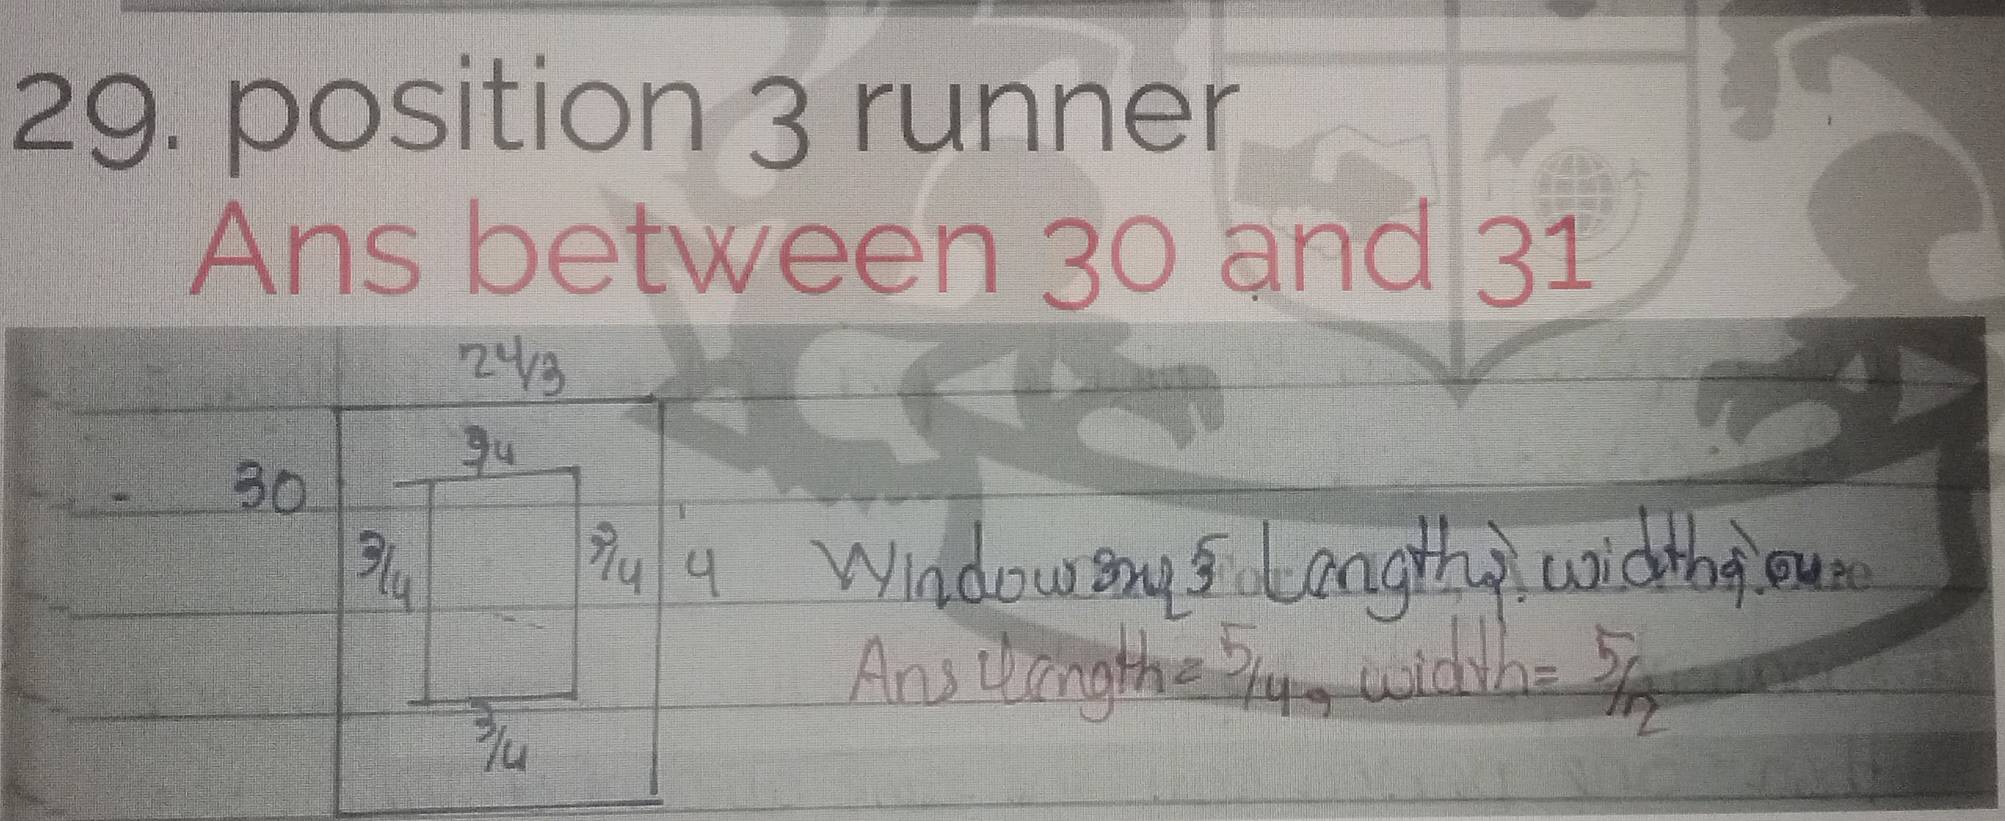 29. position 3 runner
Ans between 30 and 31
2 4/3
3/4
30
3/4 3/4 4
Window length, width
Ans length = 5/4, width = 5/12
3/4